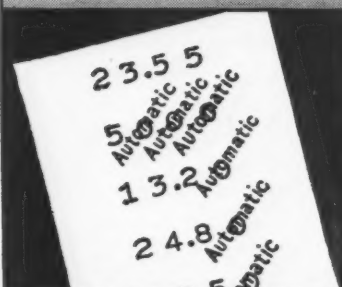 2 3.5 5
5
Automatic
Automatic
Automatic
1 3.2 0
Automatic
2 4.8 0
Automatic
5